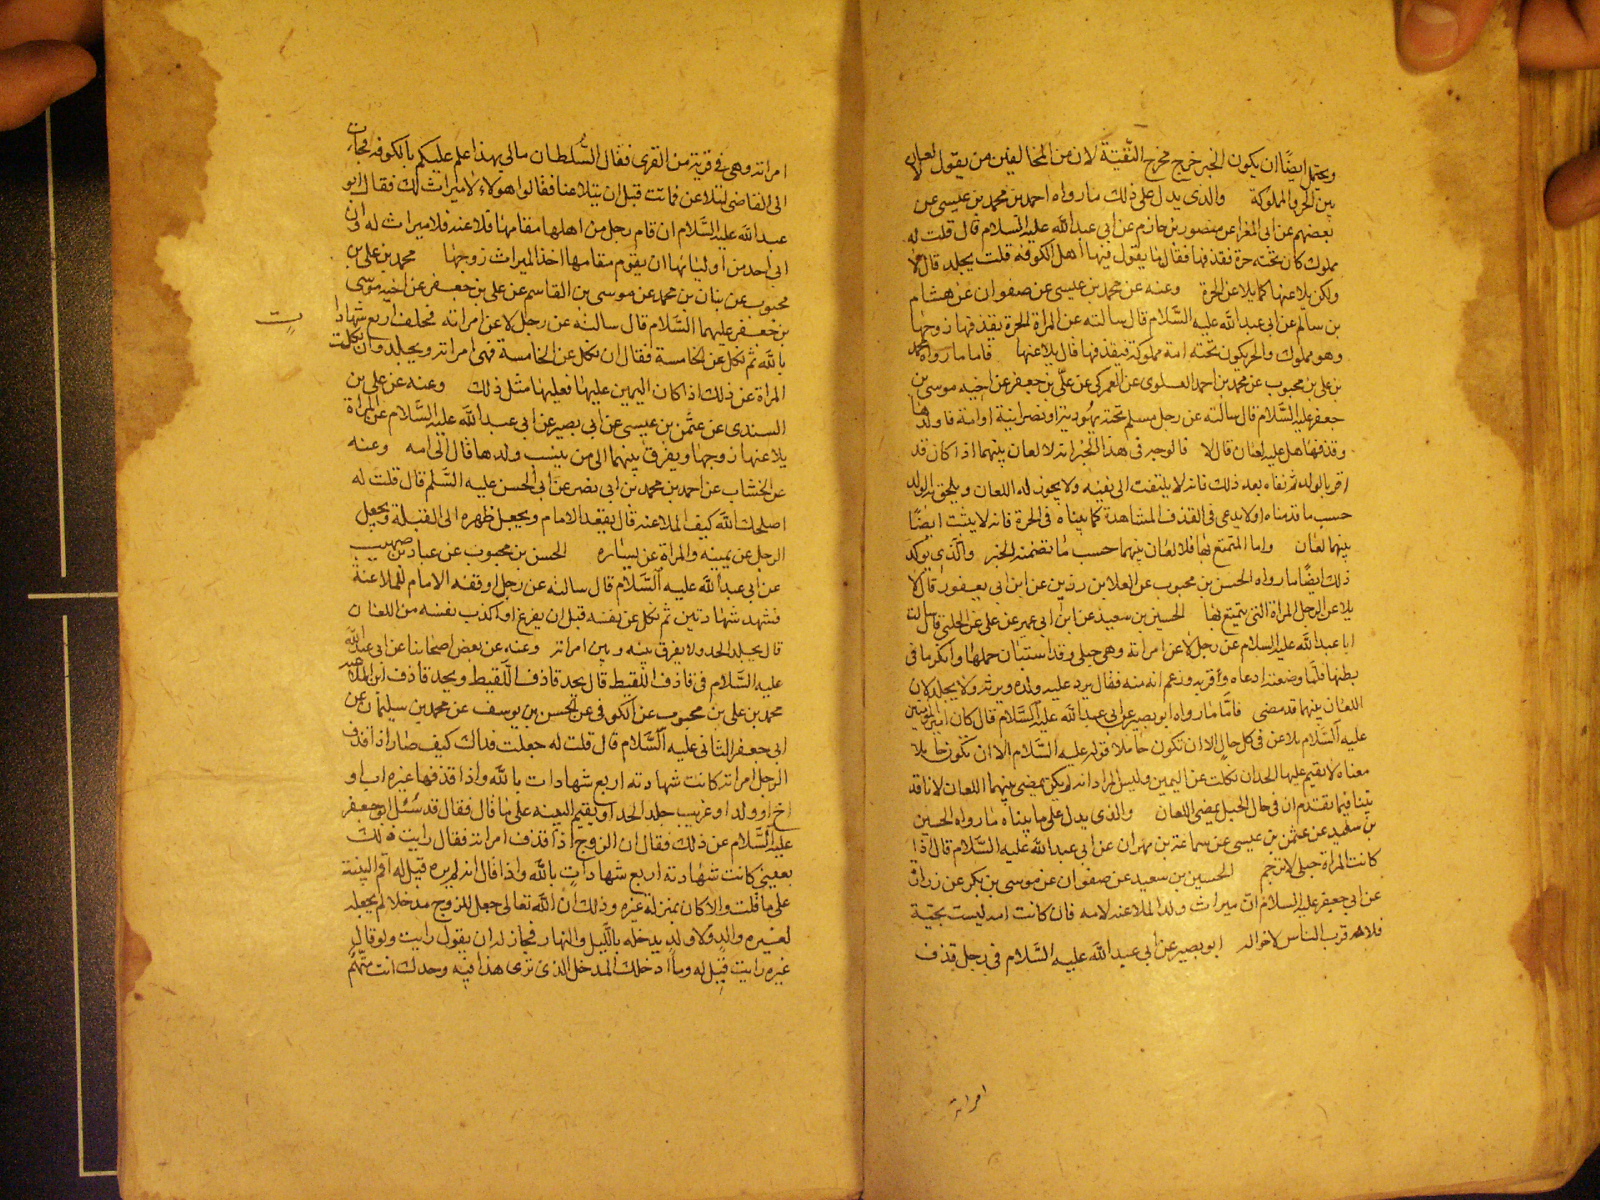 ويحتمل ايضًا ان يكون الخبر خرج مخرج التقية لان من المخالفين من يقول لا لعان
بين الحر والمملوكة والذي يدل على ذلك ما رواه احمد بن محمد بن عيسى عن
بعضهم عن ابى المغرا عن منصور بن حازم عن ابى عبد الله عليه السلام قال قلت له
مملوك كان تحته حرة فقذفها فقال ما يقول فيها اهل الكوفة قلت يجلد قال لا
ولكن يلاعنها كما يلاعن الحرة وعنه عن محمد بن عيسى عن صفوان عن هشام
بن سالم عن ابى عبد الله عليه السلام قال سالته عن المراة الحرة يقذفها زوجها
وهو مملوك والحر يكون تحته امة مملوكة فيقذفها قال يلاعنها فاما ما رواه محمد
بن على بن محبوب عن محمد بن احمد العلوى عن العمركى عن على بن جعفر عن اخيه موسى بن
جعفر عليه السلام قال سالته عن رجل مسلم تحته يهودية او نصرانية او امة فاولدها
وقذفها هل عليه لعان قال لا فالوجه فى هذا الخبر انه لا لعان بينهما اذا كان قد
اقر بالولد ثم نفاه بعد ذلك فانه لا يلتفت الى نفيه ولا يجوز له اللعان ويلحق به الولد
حسب ما قدمناه او لا يدعى فى القذف المشاهدة كما بيناه فى الحرة فانه لا يثبت ايضًا
بينهما لعان واما المتمتع بها فلا لعان بينهما حسب ما تضمنه الخبر والذي يوكد
ذلك ايضًا ما رواه الحسن بن محبوب عن العلا بن رزين عن ابن ابى يعفور قال لا
يلاعن الرجل المراة التى يتمتع بها الحسين بن سعيد عن ابن ابى عمير عن على عن الحلبي قال سالت
ابا عبد الله عليه السلام عن رجل لاعن امراته وهى حبلى وقد استبان حملها وانكر ما فى
بطنها فلما وضعت ادعاه واقر به وزعم انه منه فقال يرد عليه ولده ويرثه ولا يجلد لان
اللعان بينهما قد مضى فاما ما رواه ابو بصير عن ابى عبد الله عليه السلام قال كان امير المومنين
عليه السلام يلاعن فى كل حال الا ان تكون حاملا فقوله عليه السلام الا ان تكون حاملا
معناه لا يقيم عليها الحد ان نكلت عن اليمين وليس المراد انه لم يكن يمضى بينهما اللعان لانا قد
بينا فيما تقدم ان فى حال الحبل يمضى اللعان والذى يدل على ما بيناه ما رواه الحسين
بن سعيد عن عثمن بن عيسى عن سماعة بن مهران عن ابى عبد الله عليه السلام قال اذا
كانت المراة حبلى لا ترجم الحسين بن سعيد عن صفوان عن موسى بن بكر عن زرارة
عن ابى جعفر عليه السلام ان ميراث ولد الملاعنة لامه فان كانت امه ليست بحية
فلاقرب الناس لاخواله ابو بصير عن ابى عبد الله عليه السلام فى رجل قذف
امراته
امراته وهى فى قرية من القرى فقال السلطان مالى بهذا علم عليكم بالكوفة فجات
الى القاضى لتلاعن فماتت قبل ان يتلاعنا فقالوا هولاء لا ميراث لك فقال ابو
عبد الله عليه السلام ان قام رجل من اهلها مقامها فلاعنه فلا ميراث له وان
ابى احد من اوليائها ان يقوم مقامها اخذ الميراث زوجها محمد بن على بن
محبوب عن بنان بن محمد عن موسى بن القاسم عن على بن جعفر عن اخيه موسى
بن جعفر عليهما السلام قال سالته عن رجل لاعن امراته فحلف اربع شهادات
بالله ثم نكل عن الخامسة فقال ان نكل عن الخامسة فهى امراته ويجلد وان نكلت
المراة عن ذلك اذا كان اليمين عليها فعليها مثل ذلك وعنه عن على بن
السندى عن عثمن بن عيسى عن ابى بصير عن ابى عبد الله عليه السلام عن المراة
يلاعنها زوجها ويفرق بينهما الى من ينسب ولدها قال الى امه وعنه
عن الخشاب عن احمد بن محمد بن ابى نصر عن ابى الحسن عليه السلم قال قلت له
اصلحك الله كيف الملاعنة قال يقعد الامام ويجعل ظهره الى القبلة ويجعل
الرجل عن يمينه والمراة عن يساره الحسن بن محبوب عن عباد بن صهيب
عن ابى عبد الله عليه السلام قال سالته عن رجل اوقفه الامام للملاعنة
فشهد شهادتين ثم نكل عن نفسه قبل ان يفرغ او اكذب نفسه من اللعان
قال يجلد الحد ولا يفرق بينه وبين امراته وعنه عن بعض اصحابنا عن ابى عبد الله
عليه السلام فى قاذف اللقيط قال يحد قاذف اللقيط ويحد قاذف ابن الملاعنة
محمد بن على بن محبوب عن الكوفى عن الحسن بن يوسف عن محمد بن سليمان عن
ابى جعفر الثانى عليه السلام قال قلت له جعلت فداك كيف صار اذا قذف
الرجل امراته كانت شهادته اربع شهادات بالله واذا قذفها غيره اب او
اخ او ولد او غريب جلد الحد او يقيم البينة على ما قال فقال قد سئل ابو جعفر
عليه السلام عن ذلك فقال ان الزوج اذا قذف امراته فقال رايت ذلك
بعينى كانت شهادته اربع شهادات بالله واذا قال انه لم يره قيل له اقم البينة
على ما قلت والا كان بمنزلة غيره وذلك ان الله تعالى جعل للزوج مدخلا لم يجعله
لغيره والد ولا ولد يدخله بالليل والنهار فجاز له ان يقول رايت ولو قال
غيره رايت قيل له وما ادخلك المدخل الذى ترى هذا فيه وحدك انت متهم